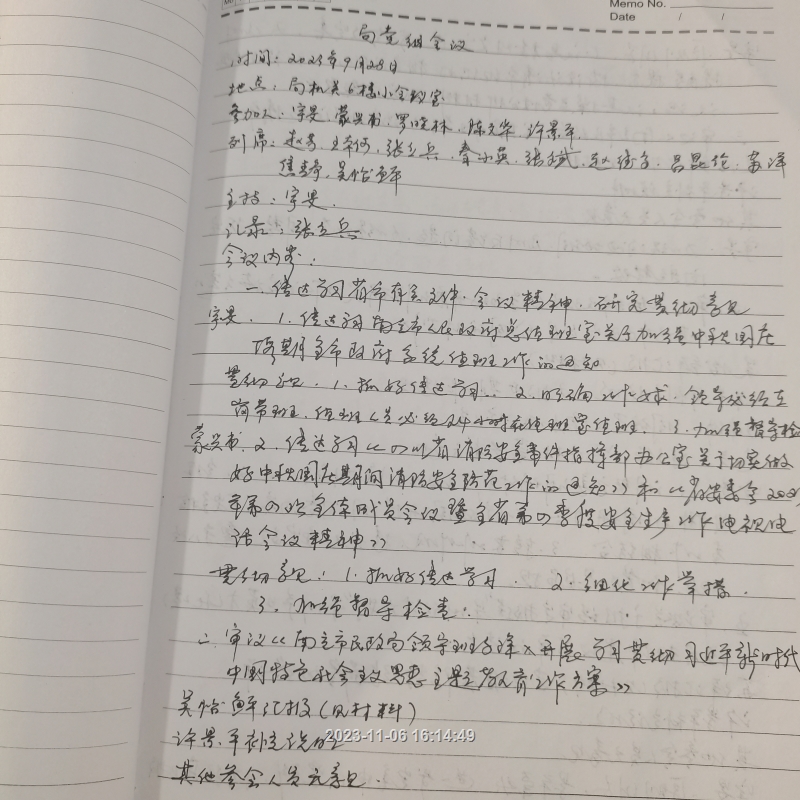 Memo No.
Date / /
局党组会议
时间：2023年9月28日
地点：局机关6楼小会议室
参加人：宇昊、蒙兴甫、罗晓林、陈元华、许景平
列席：赵芳、王 、张立兵、秦小英、张斌、赵 、吕昆伦、苏洋
吴怡鲜
主持：宇昊
记录：张立兵
会议内容：
一、传达学习省市有关文件、会议精神，研究贯彻意见
宇昊：1. 传达学习南充市人民政府总值班室关于加强中秋国庆
假期全市政府系统值班工作的通知
贯彻意见：1. 抓好传达学习。2. 明确工作要求，领导必须在
岗带班，值班人员必须24小时在值班室值班。3. 加强督导检
蒙兴甫：2. 传达学习《四川省消防安全事件指挥部办公室关于切实做
好中秋国庆期间消防安全防范工作的通知》和《省安委会2023
年第四次全体成员会议暨全省第四季度安全生产工作电视电
话会议精神》
贯彻意见：1. 抓好传达学习。2. 细化工作举措。
3. 加强督导检查。
二、审议《南充市民政局领导班子深入开展学习贯彻习近平新时代
中国特色社会主义思想主题教育工作方案》
吴怡鲜汇报（见材料）
许景平补充说明
其他参会人员无意见
2023-11-06 16:14:49